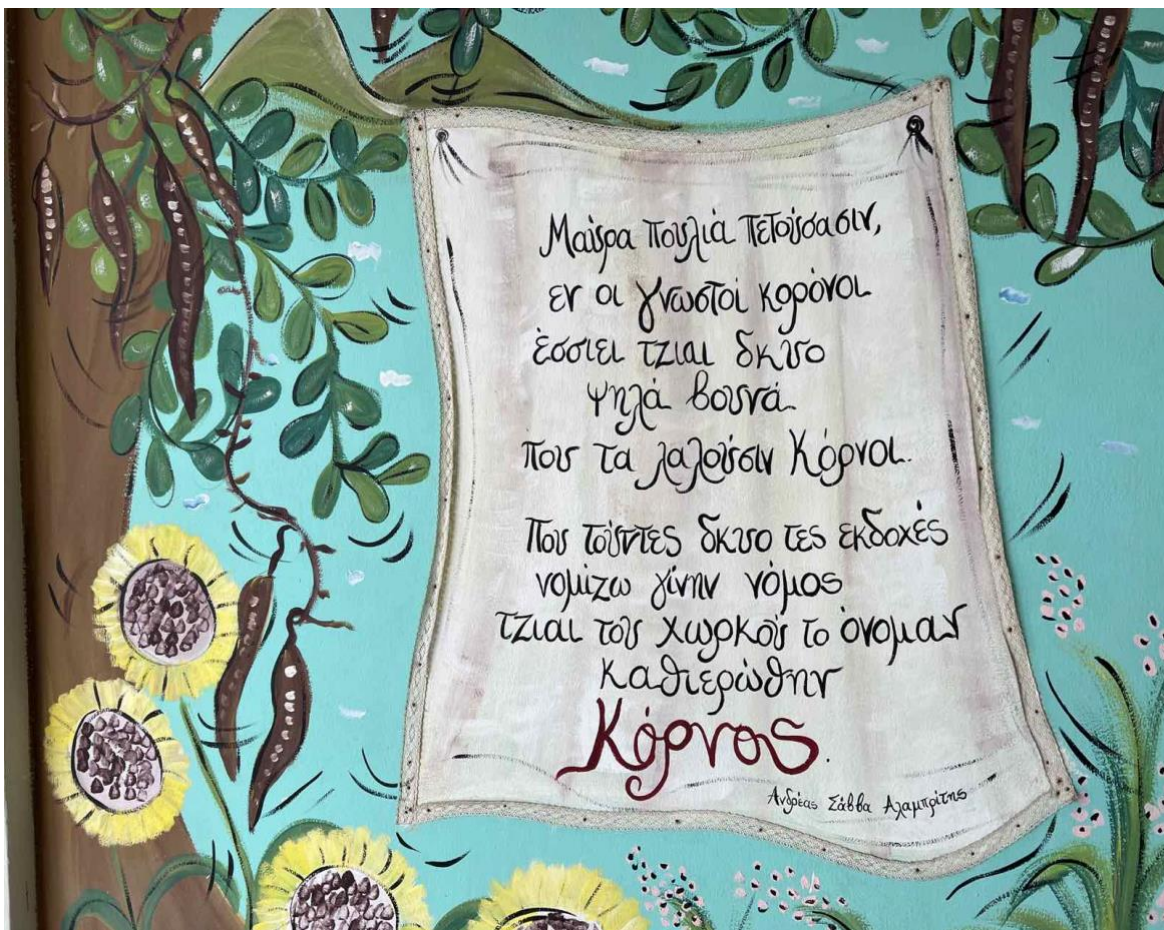 Μαύρα πουλιά πετούσασιν,
εν οι γνωστοί κορόνοι
έσσιει τζιαι δκυο
ψηλά βουνά
που τα λαλούσιν Κόρνοι.
Που τούντες δκυο τες εκδοχές
νομίζω γίνην νόμος
τζιαι του χωρκού το όνομαν
καθιερώθην
Κόρνος.
Ανδρέας Σάββα Αλαμπρίτης